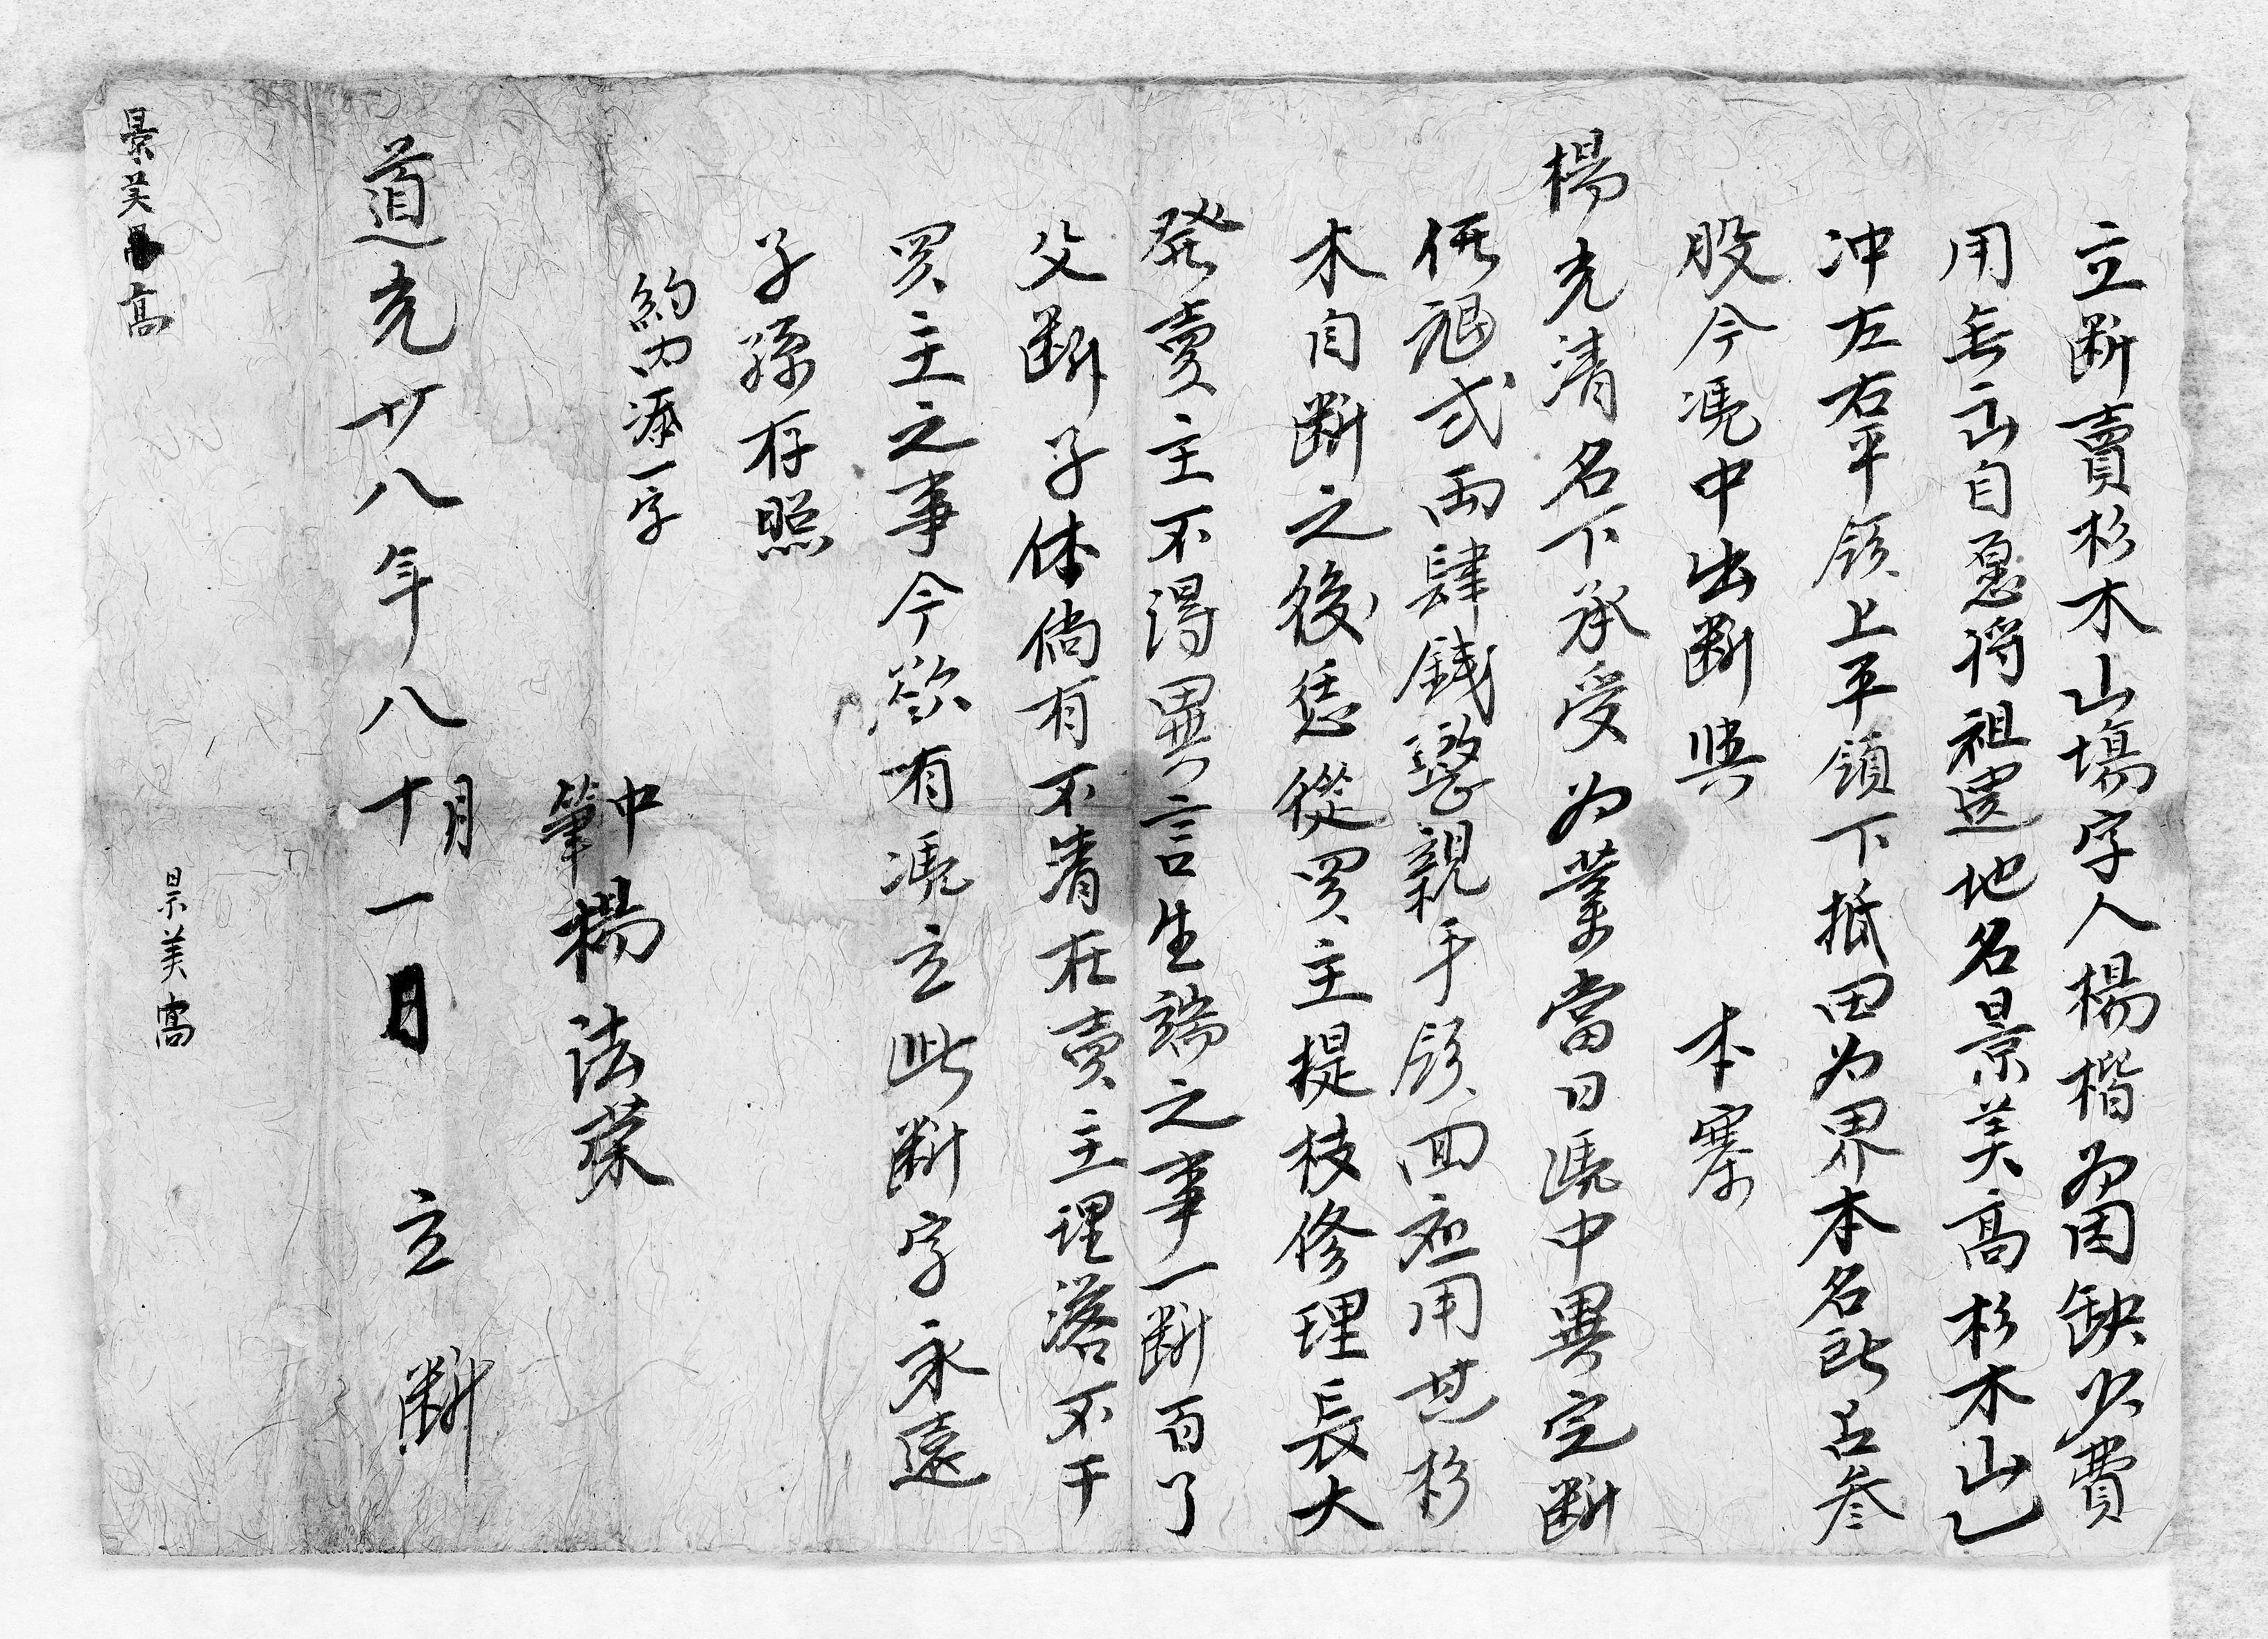 立斷賣杉木山塲字人楊楷為因缺少費
用無出自愿将祖遺地名景美高杉木山乙
冲左右平領上平領下抵田为界本名所占叁
股今凴中出斷與　本寨
楊光清名下承受为業當日凴中異定断
價銀弍両肆錢整親手領回应用其杉
木自断之後恁從買主提枝修理長大
發賣主不得異言生端之事一断百了
父断子休倘有不清在賣主理落不干
買主之事今欲有凴立此断字永遠
子孫存照
約内添一字
中
筆 楊法榮
道光廿八年八月十一日 立 斷
景美高
景美高